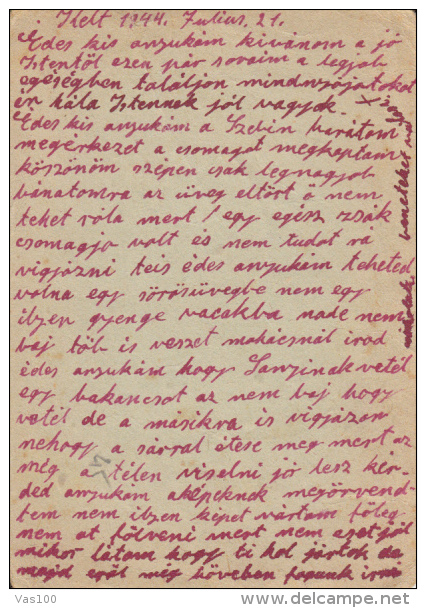 Kelt 1944. Julius, 21.
Édes kis anyukám kivánom a jó
Istentől ezen pár soraim a legjob
egéségben találjon mindnyájatokat
én hála Istennek jól vagyok.
Édes kis anyukám a Szebin baratom
megérkezet a csomagot megkaptam
köszönöm szépen csak legnagyob
bánatomra az üveg eltört ő nem
tehet róla mert egy egész zsák
csomagja volt és nem tudot rá
vigyázni teis édes anyukám teheted
volna egy sörösüvegbe nem egy
ilyen gyenge vacakba nade nem
baj töb is veszet makácsnál irod
édes anyukám hogy Sanyinak vetél
egy bakancsot az nem baj hogy
vetél de a másikra is vigyázon
nehogy a sárral étese meg mert az
még a télen viselni jó lesz kér-
ded anyukám aképeknek megörvend-
tem nem ilyen képet vártam főleg
nem at fölveni mert nem ezet jól
mikor látam hogy ti hol jártok de
majd eről még bőveben fogunk irni
Vas100
© www.delcampe.net